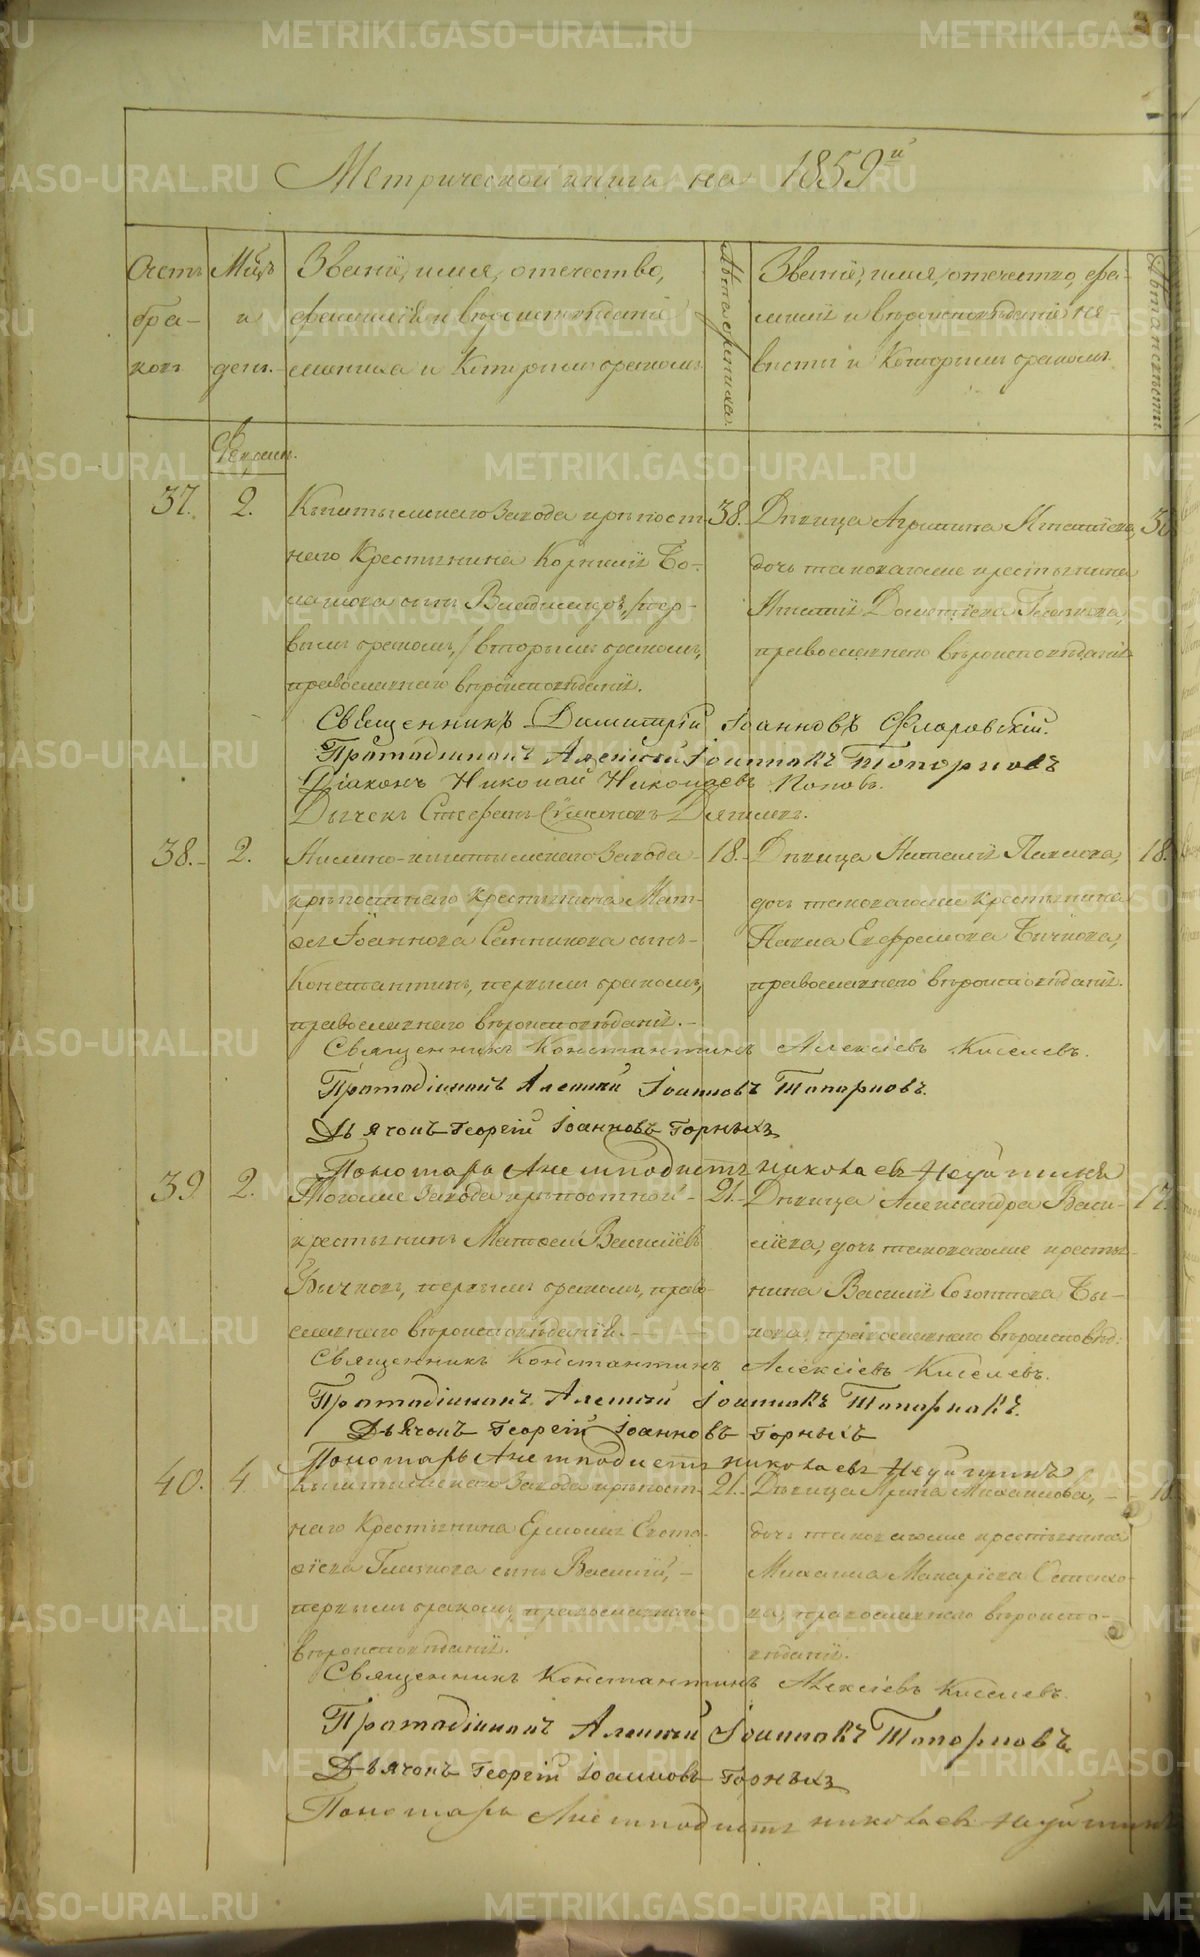 Метрической книги на 1859й
Счетъ бра- ковъ
Мѣцъ и день.
Званіе, имя, отечество,
фамилія и вѣроисповѣданіе
жениха и которымъ бракомъ
Лѣта жениха.
Званіе, имя, отечество, фа-
милія и вѣроисповѣданіе не-
вѣсты и которымъ бракомъ
Лѣта невѣсты
37. 2. Кыштымскаго завода крѣпост-
наго Крестьянина Корнилія
сынъ Владимиръ, пер-
вымъ бракомъ, вторымъ бракомъ,
православнаго вѣроисповѣданія.
38.
Дѣвица Агрипина
дочь таковагоже крестьянина
православнаго вѣроисповѣданія
Священникъ Димитрій Іоанновъ Флоровскій.
Протодіаконъ Алексѣй Іоанновъ Топорковъ
Діаконъ Николай Николаевъ Поповъ.
Дьячекъ Стефанъ Симеоновъ
38. 2. Нижне-кыштымскаго завода
крѣпостнаго крестьянина Мат-
ѳея Іоаннова Санникова сынъ
Константинъ, первымъ бракомъ,
православнаго вѣроисповѣданія.
18.
Дѣвица Наталія Павлова,
дочь таковагоже крестьянина
Павла Ефремова Бычкова,
православнаго вѣроисповѣданія.
18.
Священникъ Константинъ Алексіевъ Киселевъ.
Протодіаконъ Алексѣй Іоанновъ Топорковъ.
Дьячокъ Георгій Іоанновъ Горныхъ
Пономарь Анемподистъ Николаевъ Неуйминъ
39. 2. Тогоже завода крѣпостной
крестьянинъ Матѳей Василіевъ
Бычковъ, первымъ бракомъ, право-
славнаго вѣроисповѣданія.
21.
Дѣвица Александра Васи-
ліева, дочь таковагоже кресть-
янина Василія Созонтова Бы-
кова, православнаго вѣроисповѣд.
17.
Священникъ Константинъ Алексіевъ Киселевъ.
Протодіаконъ Алексѣй Іоанновъ Топорковъ.
Дьячокъ Георгій Іоанновъ Горныхъ
Пономарь Анемподистъ Николаевъ Неуйминъ
40. 4 Кыштымскаго завода крѣпост-
наго Крестьянина Ермолая Евста-
ѳіева Глазкова сынъ Василій,
первымъ бракомъ, православнаго
вѣроисповѣданія.
21.
Дѣвица Ирина Михаилова,
дочь таковагоже крестьянина
Михаила Макаріева
православнаго вѣроиспо-
вѣданія.
18
Священникъ Константинъ Алексіевъ Киселевъ.
Протодіаконъ Алексѣй Іоанновъ Топорковъ.
Дьячокъ Георгій Іоанновъ Горныхъ
Пономарь Анемподистъ Николаевъ Неуйминъ
METRIKI.GASO-URAL.RU